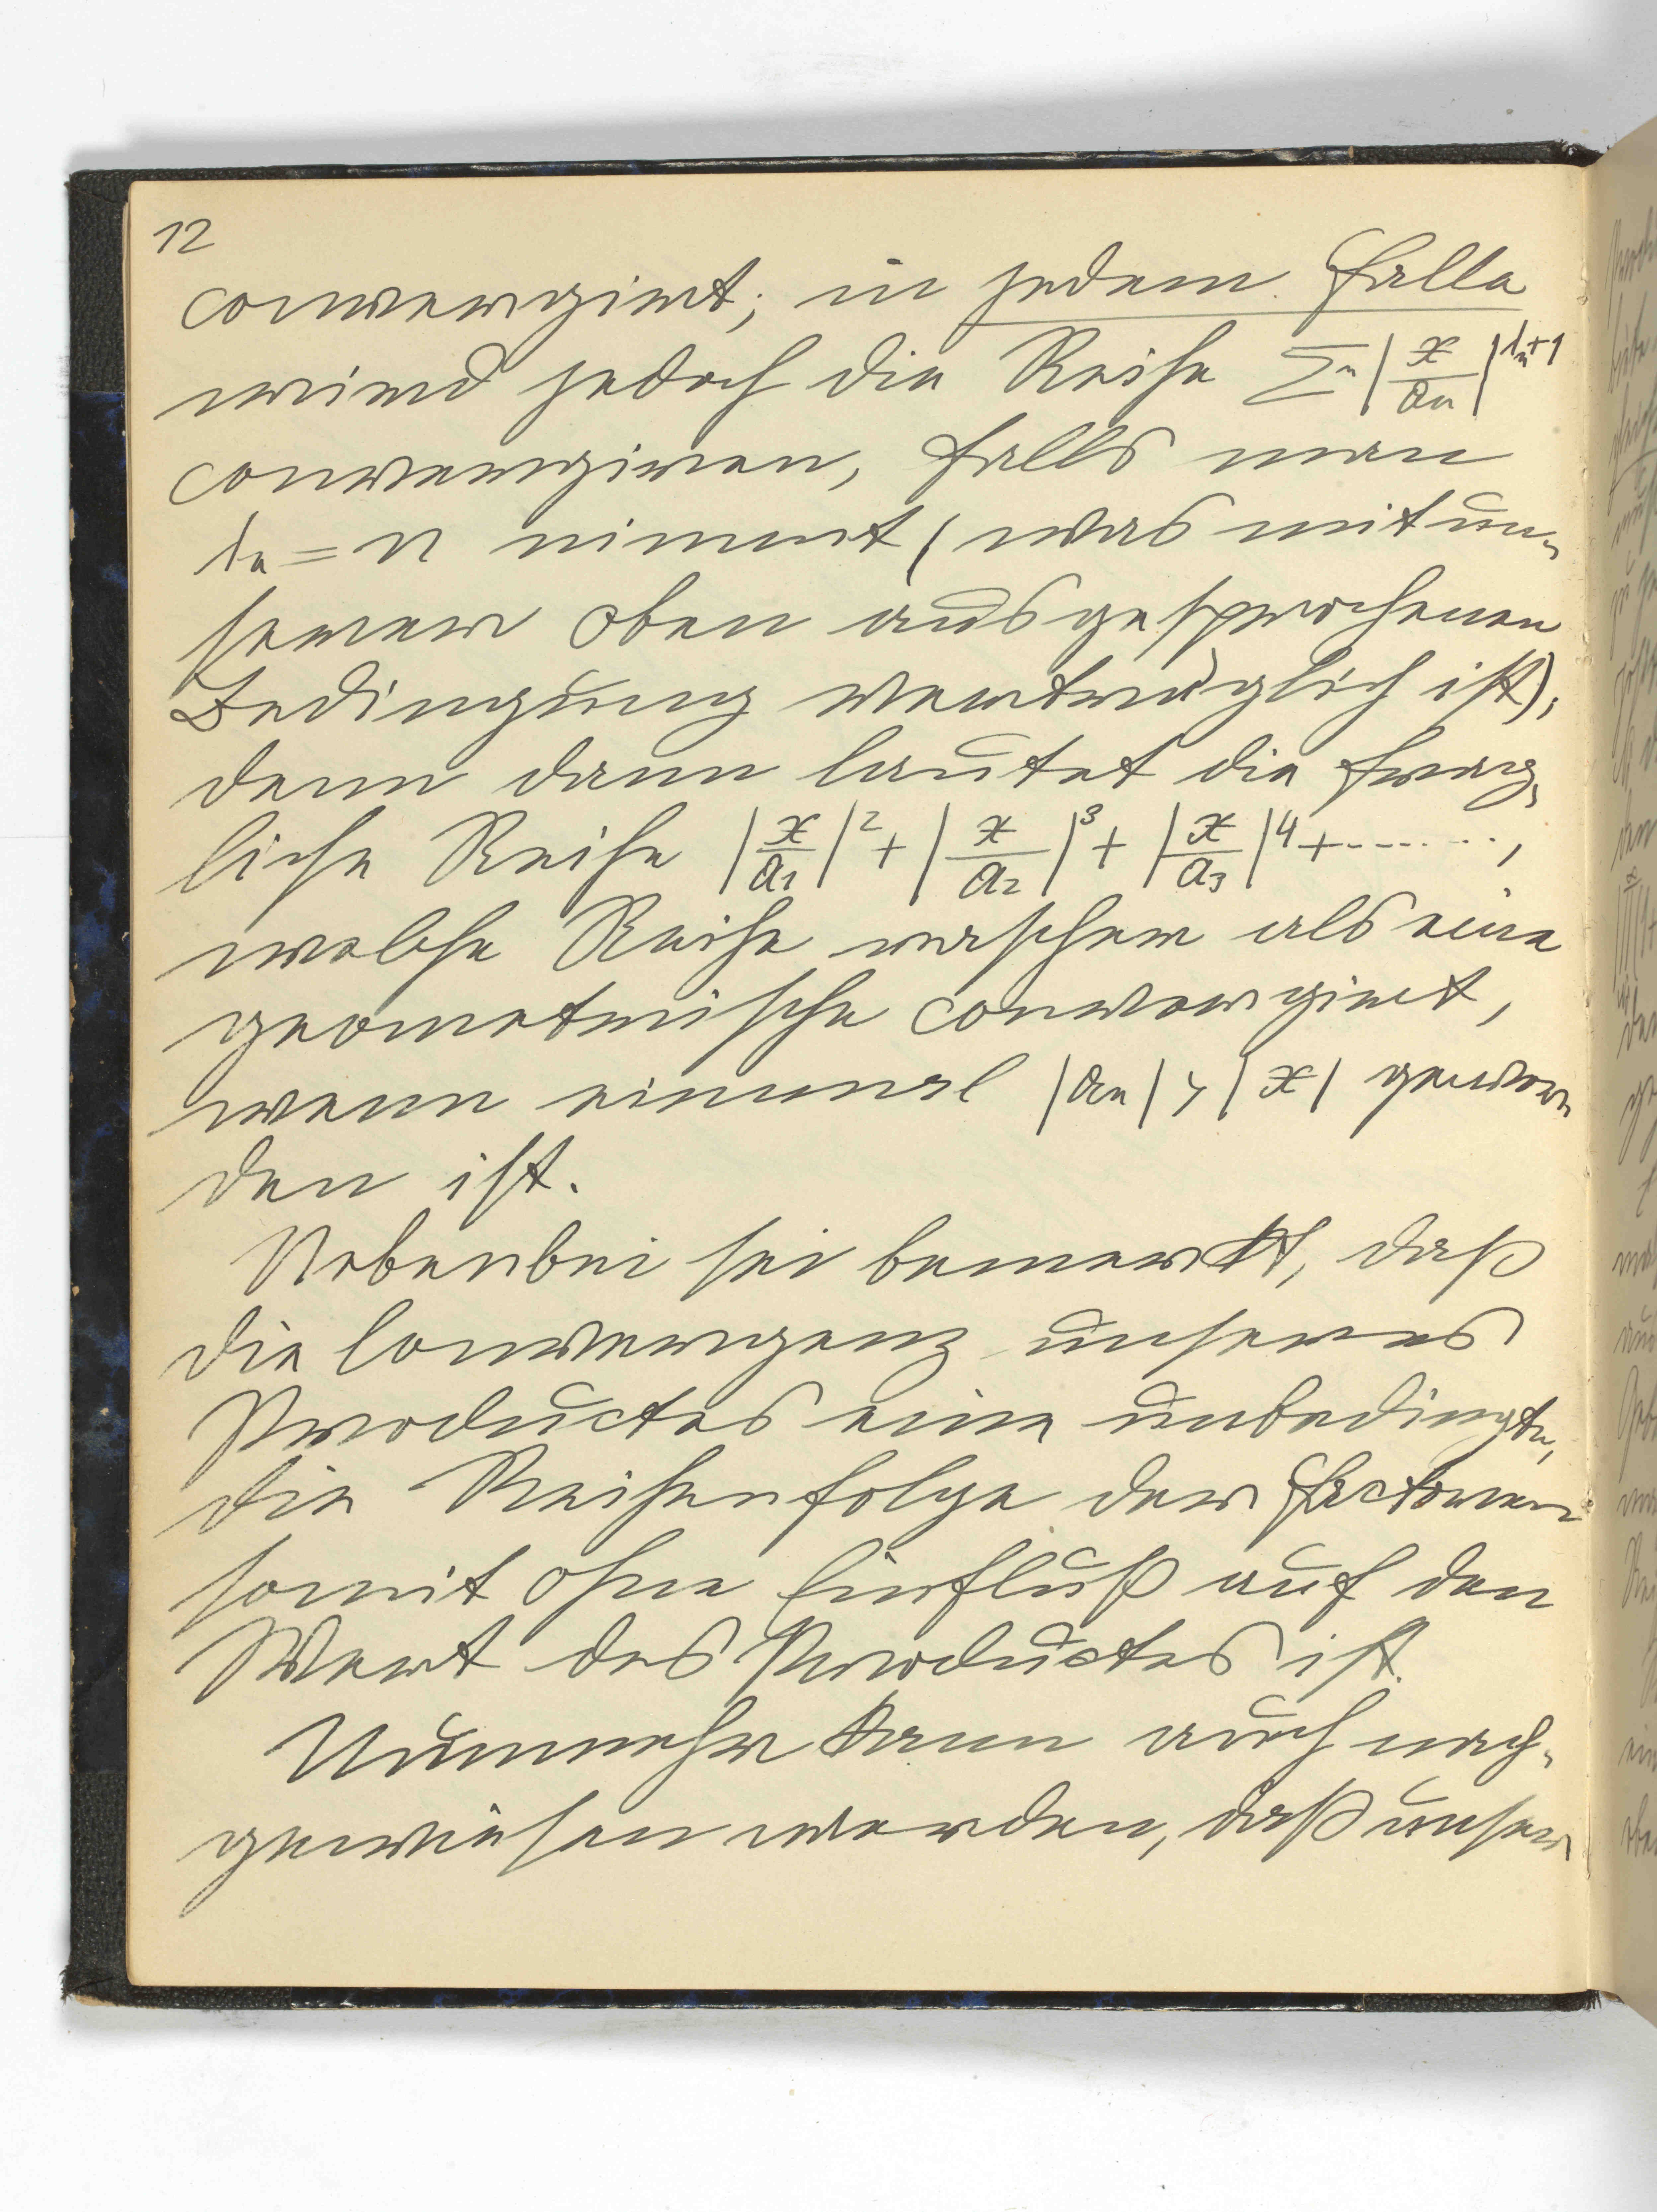 12
convergirt; in jedem Falle
wird jedoch die Reihe Σₙ |x/aₙ|^(lₙ+1)
convergiren, falls man
lₙ = n nimmt (was mit un-
serer oben ausgesprochenen
Bedingung verträglich ist);
denn dann lautet die frag-
liche Reihe |x/a₁|² + |x/a₂|³ + |x/a₃|⁴ + ........,
welche Reihe rascher als eine
geometrische convergirt,
wenn einmal |aₙ| > |x| gewor-
den ist.
Nebenbei sei bemerkt, daß
die Convergenz unseres
Productes eine unbedingte,
die Reihenfolge der Factoren
somit ohne Einfluß auf den
Wert des Productes ist.
Nunmehr kann auch nach-
gewiesen werden, daß unser